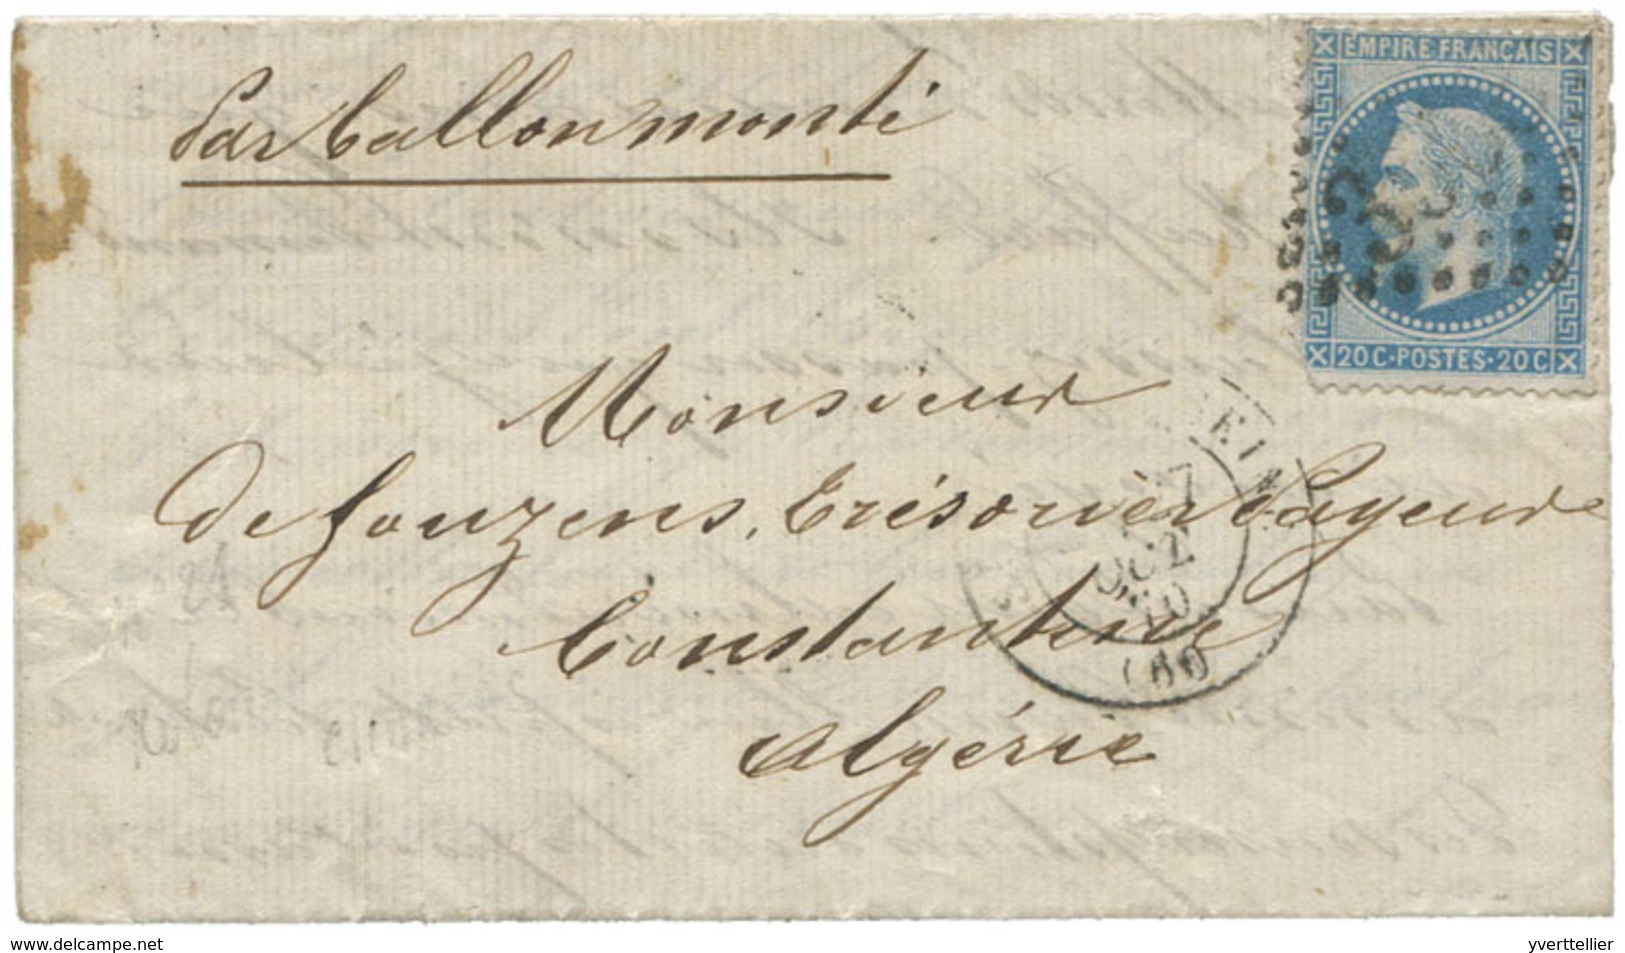 Par Ballon monté
EMPIRE FRANCAIS
20C·POSTES·20C
Monsieur
de Fonzens, Trésorier Payeur
Constantine
Algérie
OCT.
70
(60)
www.delcampe.net
yverttellier